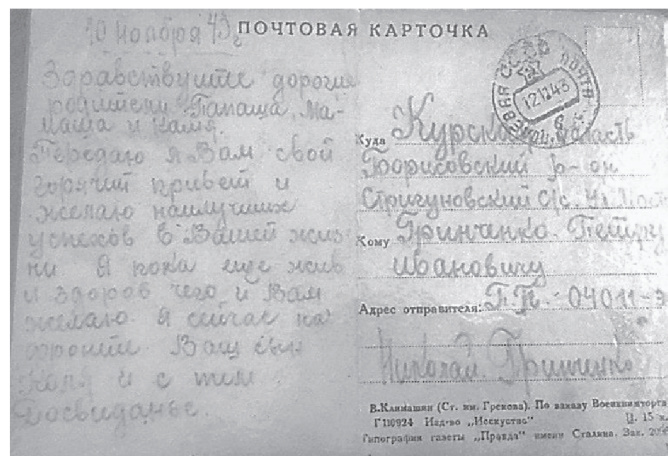 10 Ноября 43г
Здравствуйте дорогие
родители Папаша, ма-
маша и Катя.
Передаю я Вам свой
горячий привет и
желаю наилучших
успехов в Вашей жиз-
ни Я пока еще жив
и здоров чего и Вам
желаю. Я сейчас на
фронте. Ваш сын
Коля и с тем
Досвиданье.
ПОЧТОВАЯ КАРТОЧКА
ПОЛЕВАЯ ПОЧТА
12 11 43
Куда Курская область
Борисовский р-он
Стригуновский с/с
Кому Гринчанко Петру
Ивановичу
Адрес отправителя: П.П. 04011-
Николай Гринченко
В.Климашин (Ст. им. Грекова). По заказу Военвоенторга
Г110924 Изд-во „Искусство" Ц. 15 к.
Типография газеты „Правда" имени Сталина. Зак.